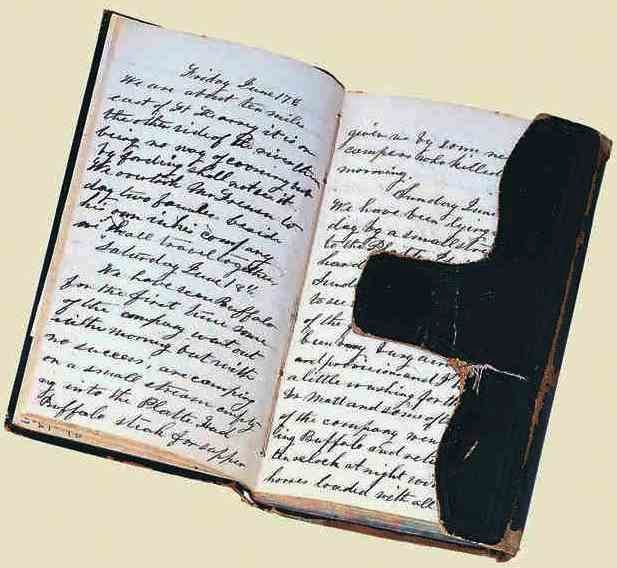 Friday June 17th
We are about ten miles
east of Ft Kearny it is on
the other side of the river there
being no way of coming but
by fording shall not see it
We overtook Mr to
day two families beside
his own in his company
we shall travel together
Saturday June 18th
We have seen Buffalo
for the first time some
of the company went out
in the morning but with
no success; are camping
on a small stream empty
ing into the Platte, had
Buffalo steak for supper
given us by some ne
company who killed
morning.
Sunday June
We have been lying
day by a small st
to the Platte
hard
Sund
to see
of the
and provision and I
a little washing for th
Dr Matt and some of th
of the company wen
ing Buffalo and retu
o'clock at night
horses loaded with all